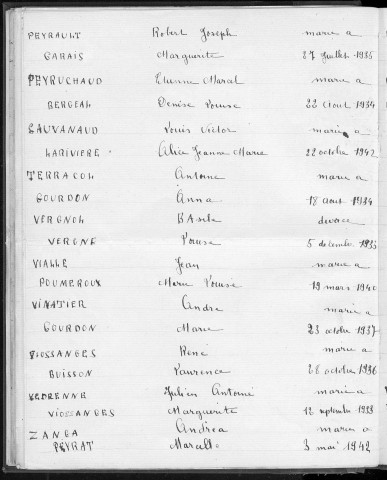 PEYRAULT Robert Joseph marié a
GARAIS Marguerite 27 juillet 1935
PEYRUCHAUD Etienne Marcel marié a
BERGEAL Denise Louise 22 août 1934
SAUVANAUD Louis Victor marié a
LARIVIERE Alice Jeanne Marie 22 octobre 1942
TERRACOL Antoine marié a
GOURDON Anna 18 août 1934
VERGNOL BAsile divorcé
VERGNE Louise 5 décembre 1935
VIALLE Jean marié a
POUMEROUX Marie Louise 19 mars 1940
VINATIER André marié a
GOURDON Marie 23 octobre 1937
VIOSSANGES René marié a
BUISSON Laurence 28 octobre 1936
VEDRENNE Julien Antoine marié a
VIOSSANGES Marguerite 12 septembre 1938
ZANGA Andrea marié a
PEYRAT Marcelle 3 mai 1942